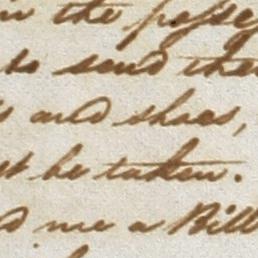 in the posse
to send the
s and shoes,
t be taken.
d me a Bill